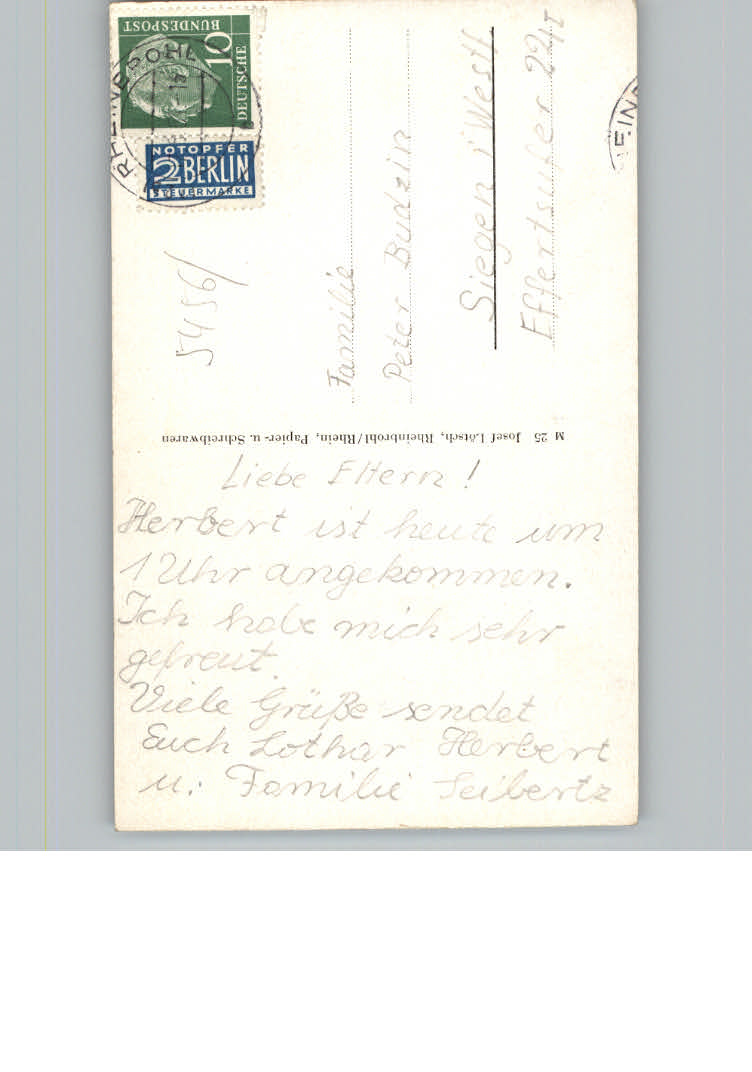 DEUTSCHE
BUNDESPOST
10
RHEINBROHL
NOTOPFER
2 BERLIN
STEUERMARKE
5456/
Familie
Peter Budzin
Siegen i/Westf
Effertsufer 22/I
M 25 Josef Lötsch, Rheinbrohl/Rhein, Papier- u. Schreibwaren
Liebe Eltern!
Herbert ist heute um
1 Uhr angekommen.
Ich habe mich sehr
gefreut.
Viele Grüße sendet
Euch Lothar Herbert
u. Familie Seibertz